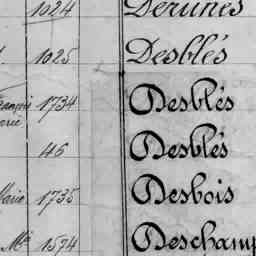 1024 Derunes
1025 Desblés
1734 Desblés
46 Desblés
Marie 1735 Desbois
Mie 1574 Deschamp